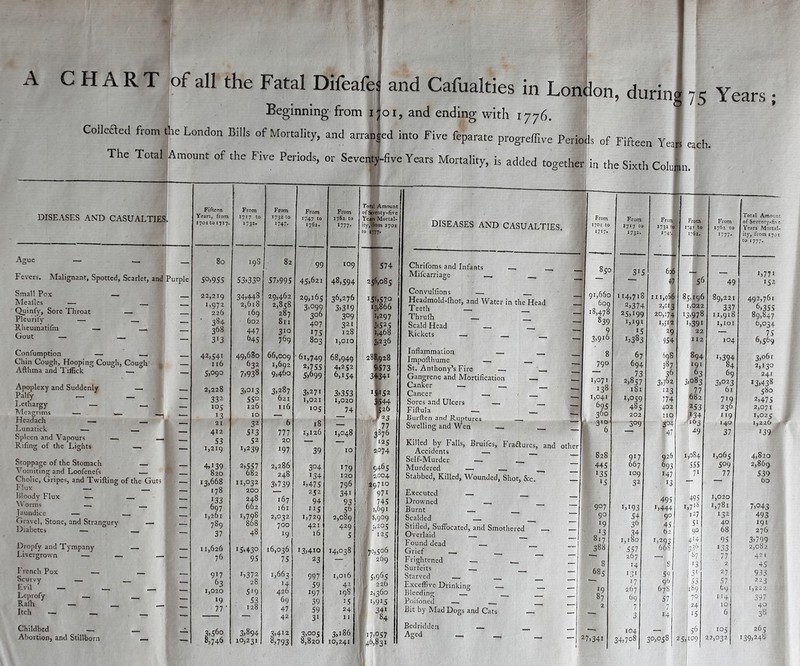 A CHART of all the Fatal Difeafes and Cafualties in London, during 75 Years;
Beginning from 1701, and ending with 1776.
Collected from the London Bills of Mortality, and arranged into Five feparate progreffive Periods of Fifteen Years each.
The Total Amount of the Five Periods, or Seventy-five Years Mortality, is added together in the Sixth Column.
DISEASES AND CASUALTIES. Fifteen Years, from 1702 to 1717. From 1717 to 1732. From 1732 to 1747. From 1747 to 1762. From 1762 to 1777. Total Amount of Seventy-five Years Mortality, from 1702 to 1777.
Ague 80 198 82 99 109 574
Fevers. Malignant, Spotted, Scarlet, and Purple 50,955 53,330 57,995 45,621 48,594 256,085
Small Pox 22,219 34,448 29,462 29,165 36,276 151,570
Meafles 1,972 2,618 2,858 3,099 3,319 13,866
Quinfy, Sore Throat 226 169 287 306 309 1,297
Pleurify 384 602 811 407 321 2,525
Rheumatifm 368 447 310 175 128 1,468
Gout 313 645 769 803 1,010 3,236
Confumption 42,541 49,680 66,009 61,749 68,949 288,928
Chin Cough, Hooping Cough, Cough 116 632 1,692 2,755 4,252 9,573
Afthma and Tiffick 5,090 7,938 9,460 5,699 6,154 34,341
Apoplexy and Suddenly 2,228 3,013 3,287 3,271 3,353 15,152
Palfy 332 550 621 1,021 1,020 3,544
Lethargy 105 126 116 105 74 526
Meagrims 13 10 — — — 23
Headach 21 32 6 18 — 77
Lunatick 412 513 777 1,126 1,048 3,876
Spleen and Vapours 53 52 20 — — 125
Rifing of the Lights 1,219 1,239 197 39 10 2,074
Stoppage of the Stomach 4,139 2,557 2,286 304 179 9,465
Vomiting and Loofenefs 820 682 248 134 120 2,004
Cholic, Gripes, and Twifting of the Guts 13,668 11,032 3,739 1,475 796 29,710
Flux 178 200 — 252 341 971
Bloody Flux 133 248 167 94 93 745
Worms 697 662 161 115 56 1,691
Jaundice 1,261 1,798 2,032 1,729 2,089 8,909
Gravel, Stone, and Strangury 789 868 700 421 429 3,205
Diabetes 37 48 19 16 — 125
Dropfy and Tympany 11,626 15,430 16,036 13,410 14,038 70,506
Livergrown 76 95 75 23 — 269
French Pox 917 1,372 1,663 997 1,016 5,965
Scurvy 63 28 14 59 42 226
Evil 1,020 519 426 197 198 2,360
Leprofy 19 53 69 39 15
Rafh 77 128 47 59 24 341
Itch — — 42 31 11 84
Childbed 3,560 3,894 3,412 3,005 3,186 17,057
Abortion, and Stillborn 8,746 10,231 8,793 8,820 10,241 46,831
DISEASES AND CASUALTIES. From 1702 to 1717. From 1717 to 1732. From 1732 to 1747. From 1747 to 1762. From 1762 to 1777. Total Amount of Seventy-five Years Mortality, from 1702 to 1777.
Chrifoms and Infants 850 315 — — 1,771
Mifcarriage 47 56 49 152
Convulfions 91,660 114,718 85,196 89,221 492,761
Headmold-fhot, and Water in the Head 609 2,374 2,013 1,022 337 6,355
Teeth 18,478 25,199 20,174 13,978 11,918 89,847
Thrufh 839 1,191 1,391 1,101 6,034
Scald Head 9 15 29 22 — 75
Rickets 3,916 1,383 954 112 104 6,569
Inflammation 8 67 698 894 1,394 3,061
Impofthume 790 694 387 191 84 2,130
St. Anthony's Fire — 73 36 63 69 241
Gangrene and Mortification 1,071 2,857 3,083 3,023 13,438
Canker 138 181 123 77 61 580
Cancer 1,041 1,059 774 682 719 2,475
Sores and Ulcers 695 485 402 253 236 2,071
Fiftula 360 202 110 134 119 1,025
Burften and Ruptures 310 309 302 163 140 1,226
Swelling and Wen 6 — 47 49 37 139
Killed by Falls, Bruifes, Fractures, and other
Accidents 828 917 926 1,084 1,065 4,820
Self-Murder 445 667 693 555 509 2,869
Murdered 135 109 147 71 77 539
Stabbed, Killed, Wounded, Shot, &c. 15 32 13 — — 60
Executed — — 495 495 1,020
Drowned 907 1,193 1,444 1,718 1,781 7,043
Burnt 90 54 90 127 132 493
Scalded 19 36 45 51 40 191
Stifled, Suffocated, and Smothered 13 34 62 90 68 276
Overlaid 817 1,180 1,293 414 95 3,799
Found dead 388 557 668 133 2,082
Grief — 267 67 77 421
Frightened 8 14 8 13 2 45
Surfeits 685 131 59 31 27 933
Starved — 17 96 53 57 223
Exceffive Drinking 19 267 678 189 69 1,222
Bleeding 87 69 57 70 114 397
Poifoned 2 7 7 24 10 40
Bit by Mad Dogs and Cats — 3 14 15 6 38
Bedridden — 104 — 56 105 265
Aged 27,341 34,708 30,058 25,109 22,032 139,248